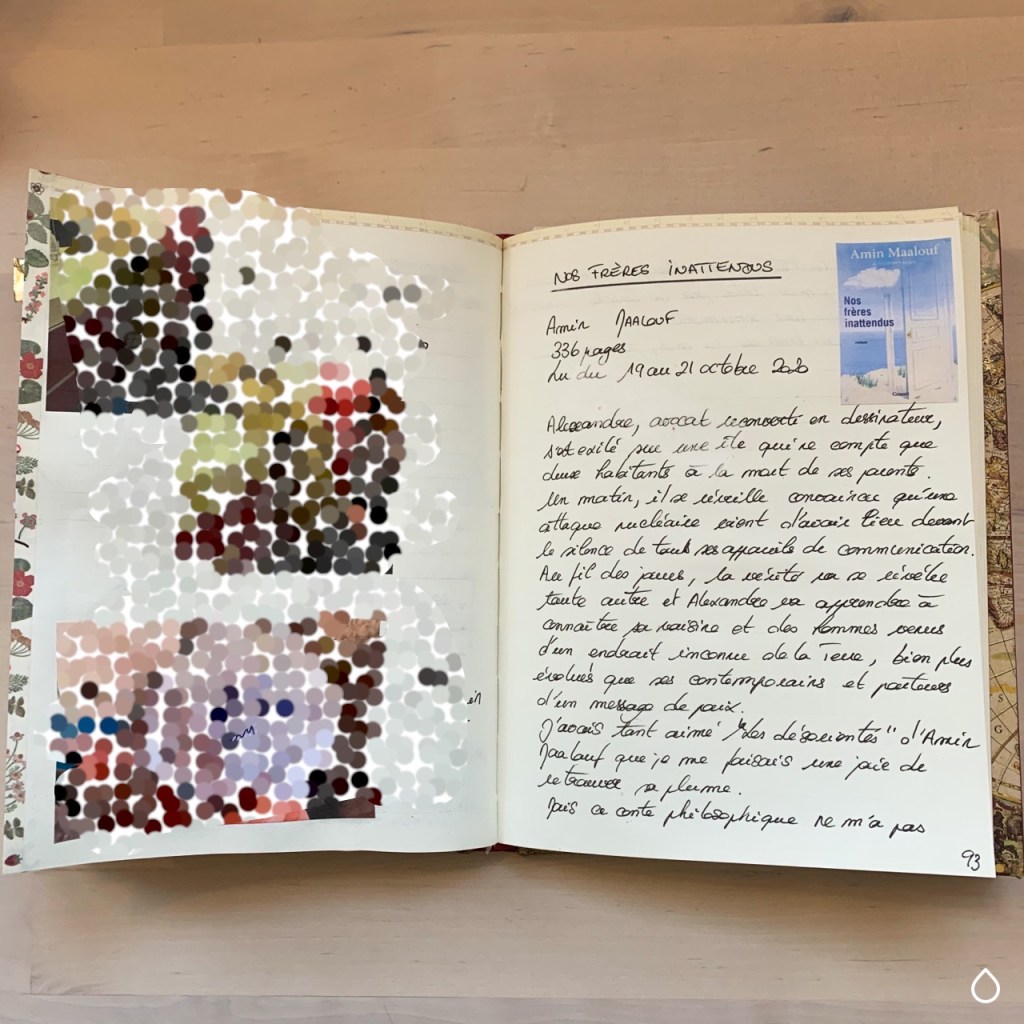 NOS FRÈRES INATTENDUS
Amin Maalouf
Nos
frères
inattendus
roman
Amin MAALOUF
336 pages
Lu du 19 au 21 octobre 2020
Alexandre, avocat reconverti en dessinateur,
s'est exilé sur une île qui ne compte que
deux habitants à la mort de ses parents.
Un matin, il se réveille convaincu qu'une
attaque nucléaire vient d'avoir lieu devant
le silence de tous ses appareils de communication.
Au fil des jours, la vérité va se révéler
toute autre et Alexandre va apprendre à
connaître sa voisine et des hommes venus
d'un endroit inconnu de la Terre, bien plus
évolués que ses contemporains et porteurs
d'un message de paix.
J'avais tant aimé "Les désorientés" d'Amin
Maalouf que je me faisais une joie de
retrouver sa plume.
Mais ce conte philosophique ne m'a pas
93